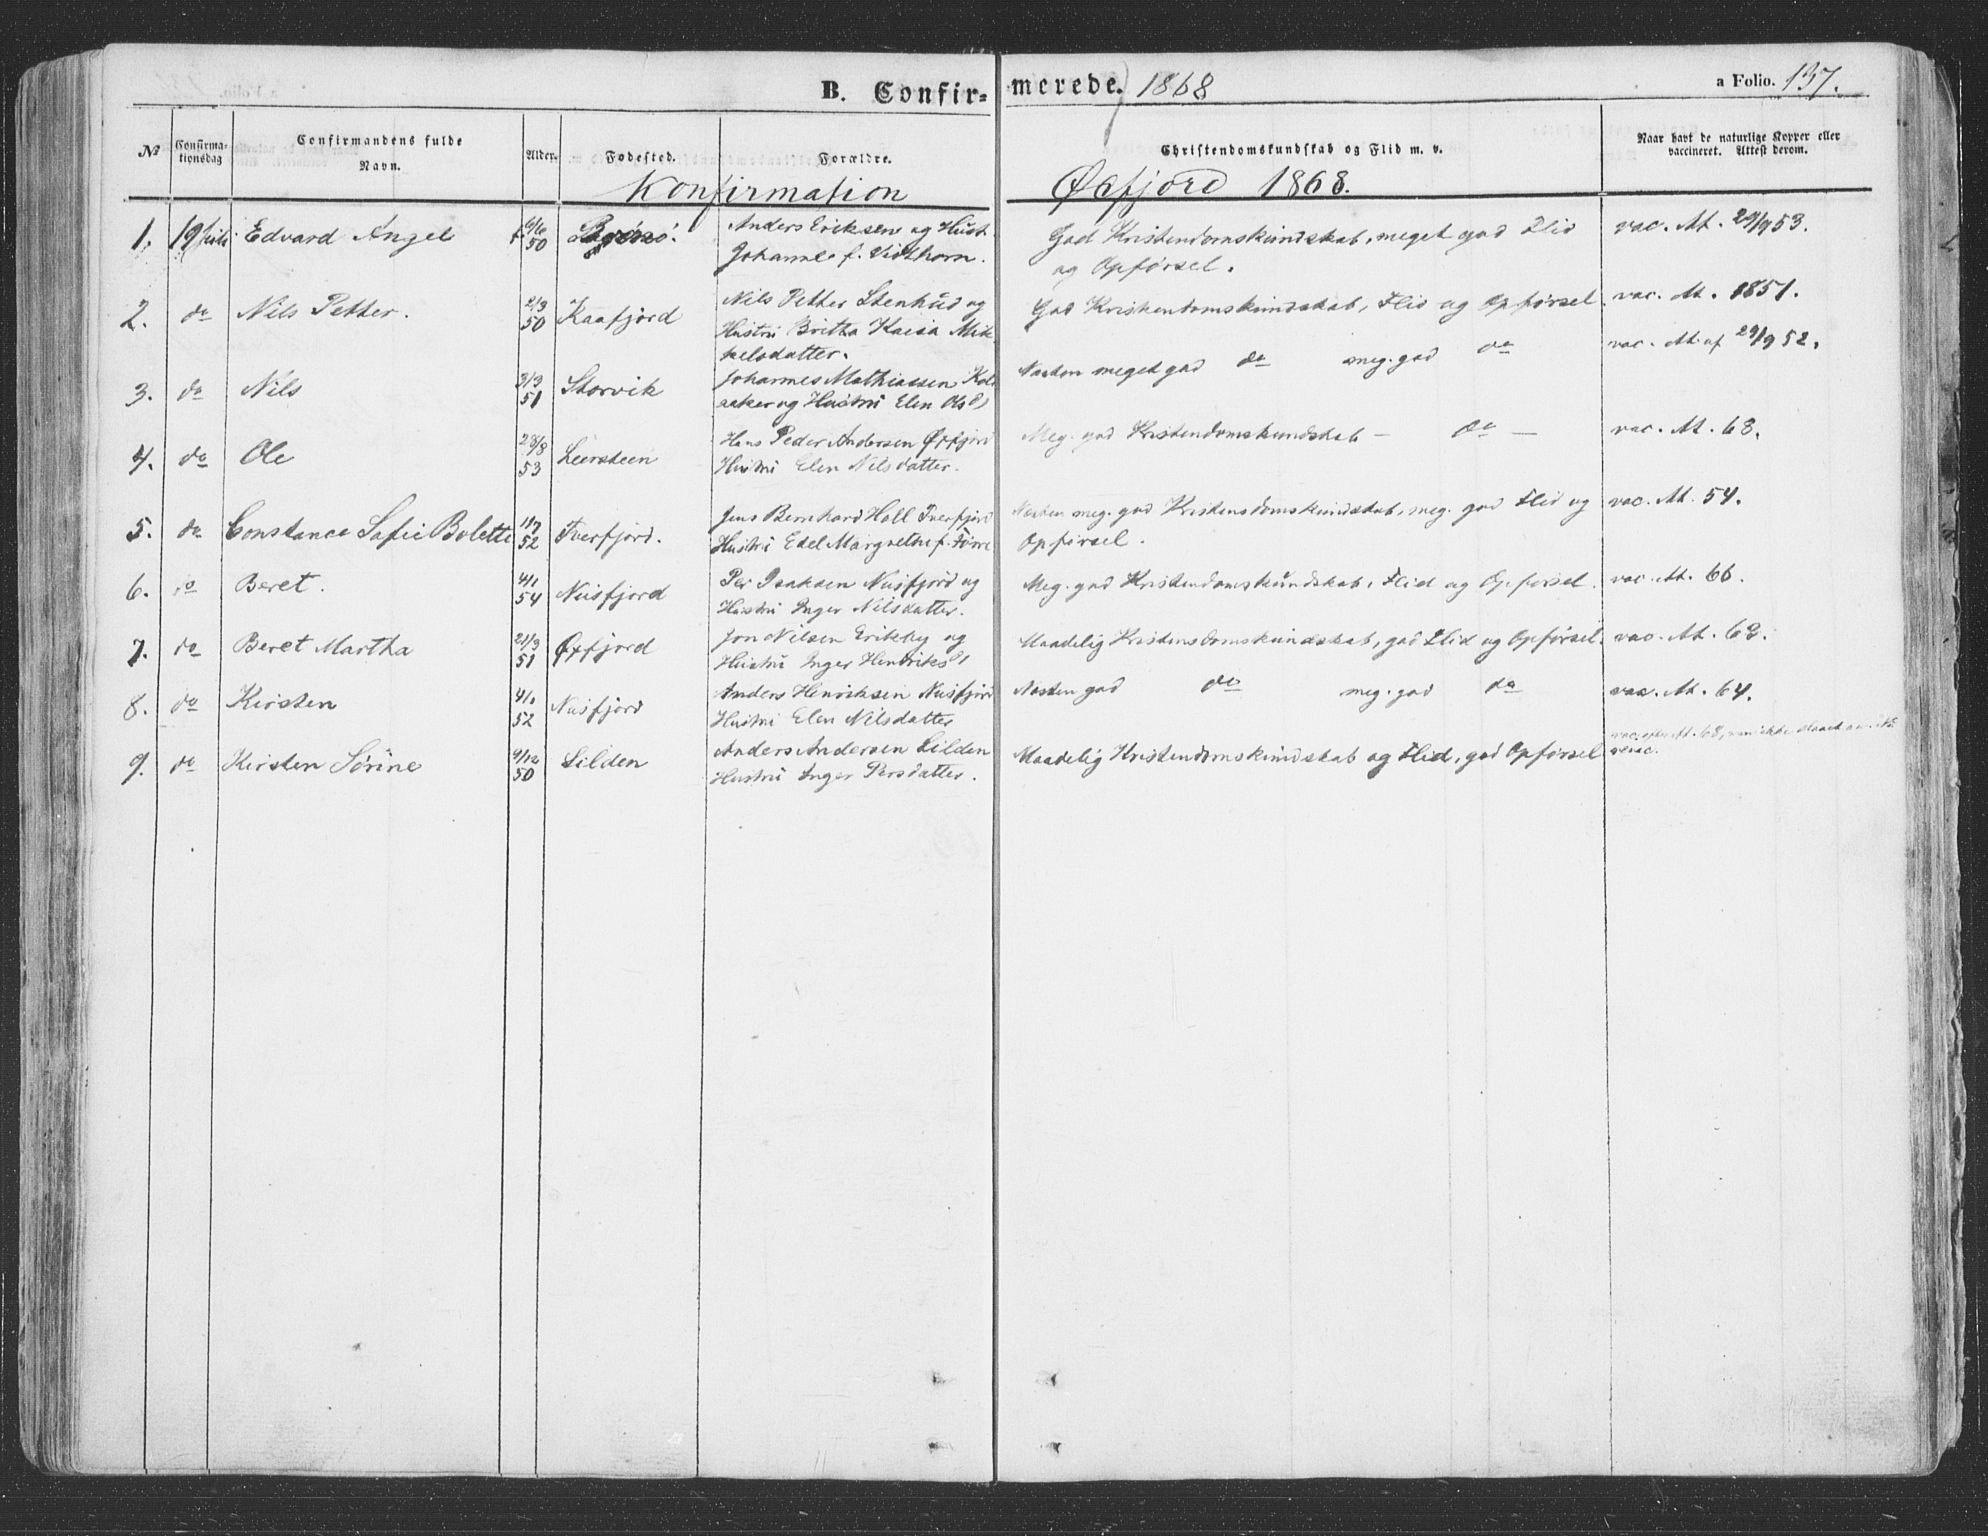 B. Confir= merede. 1868 a Folio. 137.
№ Confirma- tionsdag Confirmandens fulde Navn. Alder. Fødested. Forældre. Christendomskundskab og Flid m. v. Naar havt de naturlige Kopper eller vaccineret. Attest derom.
Konfirmasion Øxfjord 1868.
1. 19 Juli Edvard Angel 6/6 Anders Eriksen og Hust. God Kristendomskundskab, meget god Flid vac. At. 29/9 53.
50 Johanne f. Vidthorn. og Opførsel.
2. do Nils Petter. 2/3 Kaafjord Nils Petter Stenhud og God Kristendomskundskab, Flid og Opførsel vac. At. 1851.
50 Hustru Britha Kaisa Mik-
kelsdatter.
3. do Nils 3/3 Storvik Johannes Mathiassen Næsten meget god do meg. god do vac. At. af 29/9 52.
51 og Hustru Elen Olsd
4. do Ole 28/8 Leersteen Hans Peder Andersen Øxfjord Meg. god Kristendomskundskab — do — vac. At. 68.
53 Hustru Elen Nilsdatter.
5. do Constance Safie Bolette Tverfjord. Jens Bernhard Holl Tverfjord Næsten meg. god Kristensdomskundskab, meg. god Flid og vac. At. 54.
52 Hustru Edel Margrethe f. Opførsel.
6. do Beret. 4/1 Nusfjord Per Isaksen Nusfjord og Meg. god Kristendomskundskab, Flid og Opførsel. vac. At. 66.
54 Hustru Inger Nilsdatter.
7. do Beret Martha 21/3 Øxfjord Jon Nilsen Erikby og Maadelig Kristensdomskundskab, god Flid og Opførsel. vac. At. 68.
51 Hustru Inger Henriksd
8. do Kirsten 4/1 Nusfjord Anders Henriksen Nusfjord Næsten god do meg. god do vac. At. 64.
52 Hustru Elen Nilsdatter
9. do Kirsten Sørine 9/12 Lilden Anders Andersen Lilden Maadelig Kristendomskundskab og Flid, god Opførsel vac. efter At. 68, men ikke
50 Hustru Inger Persdatter.